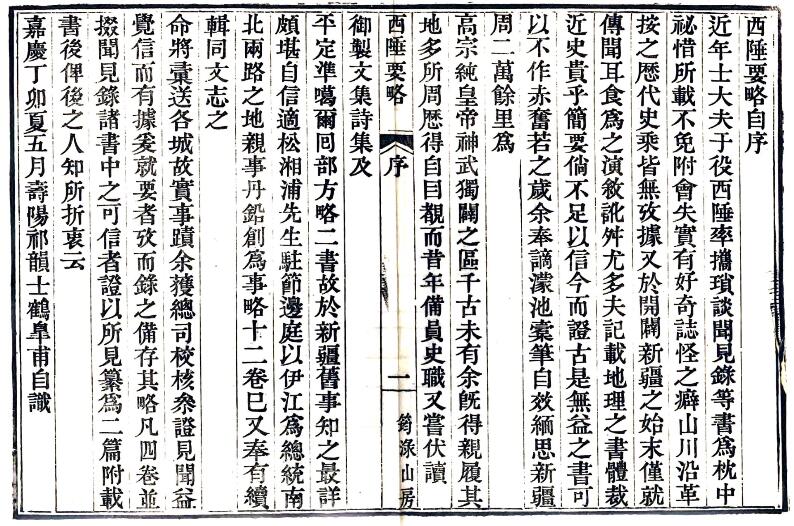 西陲要略自序
近年士大夫于役西陲率攜瑣談聞見錄等書爲枕中
祕惜所載不免附會失實有好奇誌怪之癖山川沿革
按之歷代史乘皆無攷據又於開闢新疆之始末僅就
傳聞耳食爲之演敘訛舛尤多夫記載地理之書體裁
近史貴乎簡要倘不足以信今而證古是無益之書可
以不作赤奮若之歲余奉謫濛池槖筆自效緬思新疆
周二萬餘里爲
高宗純皇帝神武獨闢之區千古未有余旣得親履其
地多所周歷得自目覩而昔年備員史職又嘗伏讀
西陲要略
序
一
筠淥山房
御製文集詩集及
平定準噶爾回部方略二書故於新疆舊事知之最詳
頗堪自信適松湘浦先生駐節邊庭以伊江爲總統南
北兩路之地親事丹鉛創爲事略十二卷巳又奉有續
輯同文志之
命將彙送各城故實事蹟余獲總司校核參證見聞益
覺信而有據爰就要者攷而錄之備存其略凡四卷並
掇聞見錄諸書中之可信者證以所見纂爲二篇附載
書後俾後之人知所折衷云
嘉慶丁卯夏五月壽陽祁韻士鶴皐甫自識